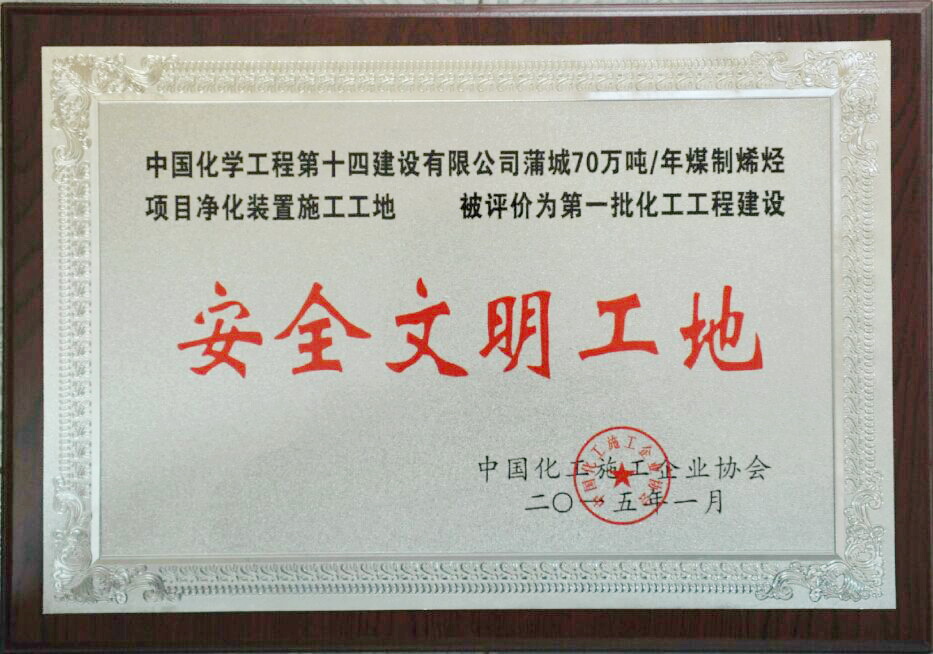 中国化学工程第十四建设有限公司蒲城70万吨/年煤制烯烃
项目净化装置施工工地 被评价为第一批化工工程建设
安全文明工地
中国化工施工企业协会
二〇一五年一月
中国化工施工企业协会